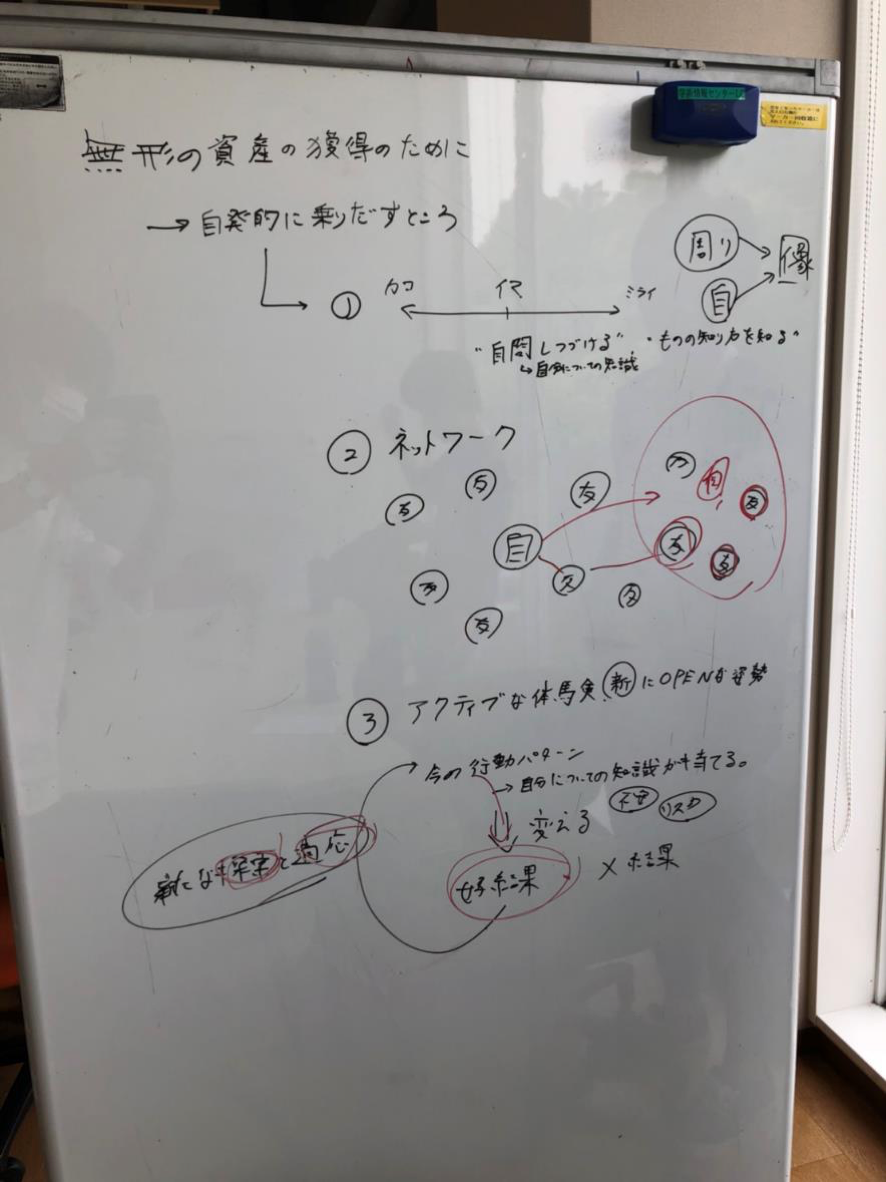 無形の資産の獲得のために
→自発的に乗りだすところ
周り
自
像
① カコ イマ ミライ
"自問しつづける"
"ものの知り方を知る"
↳自分についての知識
② ネットワーク
友 友 友
自
友 友 友 友
友 友 友
③ アクティブな体験、新にOPENな姿勢
今の行動パターン
→自分についての知識が育てる。
変える
不安 リスク
新たな探索と適応
好結果
×結果
学術情報センター